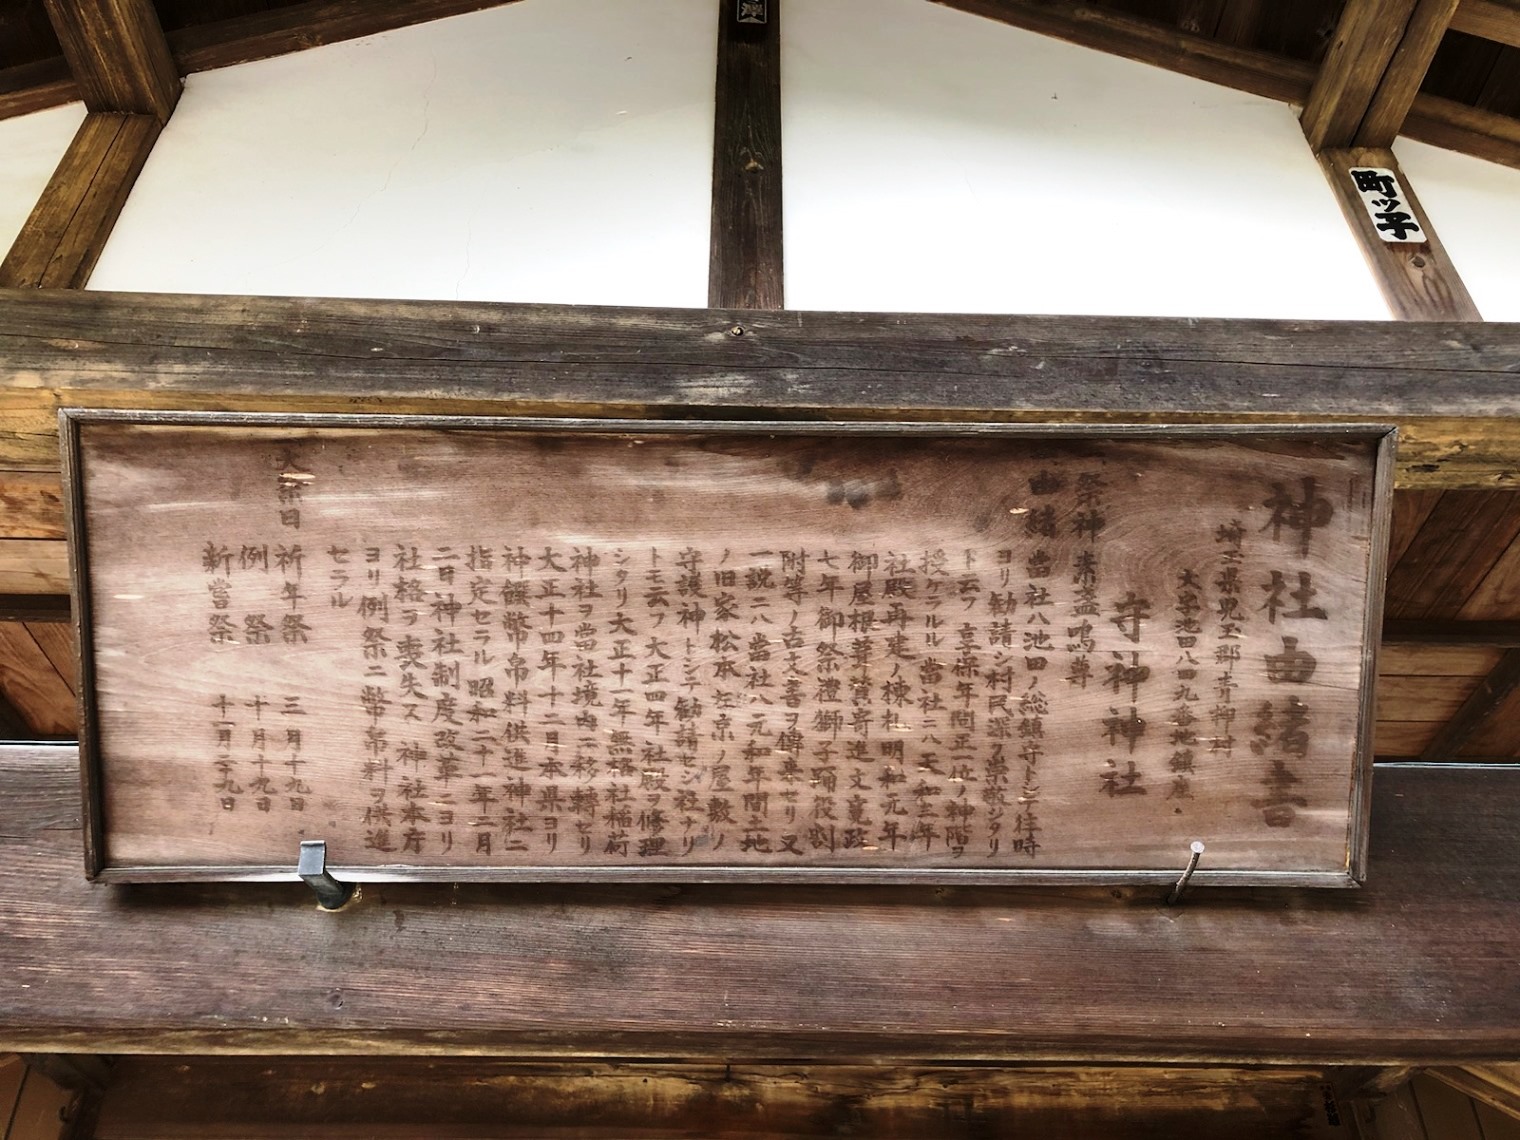 神社由緒書
埼玉県児玉郡青柳村
大字池田八四九番地鎮座
守神神社
一、祭神 素盞嗚尊
一、由緒 当社ハ池田ノ総鎮守トシテ往時
ヨリ勧請シ村民深ク崇敬シタリ
ト云フ享保年間正一位ノ神階ヲ
授ケラルル当社ニハ天和三年
社殿再建ノ棟札明和元年
御屋根葺賃寄進文寛政
七年御祭禮獅子踊役割
附等ノ古文書ヲ傳来セリ又
一説ニハ当社ハ元和年間土地
ノ旧家松本左京ノ屋敷ノ
守護神トシテ勧請セシ社ナリ
トモ云フ大正四年社殿ヲ修理
シタリ大正十一年無格社稲荷
神社ヲ當社境内ニ移轉セリ
大正十四年十二月本県ヨリ
神饌幣帛料供進神社ニ
指定セラル昭和二十一年二月
二日神社制度改革ニヨリ
社格ヲ喪失ス 神社本庁
ヨリ例祭ニ幣帛料ヲ供進
セラル
大祭日 祈年祭 三月十九日
例祭 十月十九日
新嘗祭 十一月二十九日
町ッ子